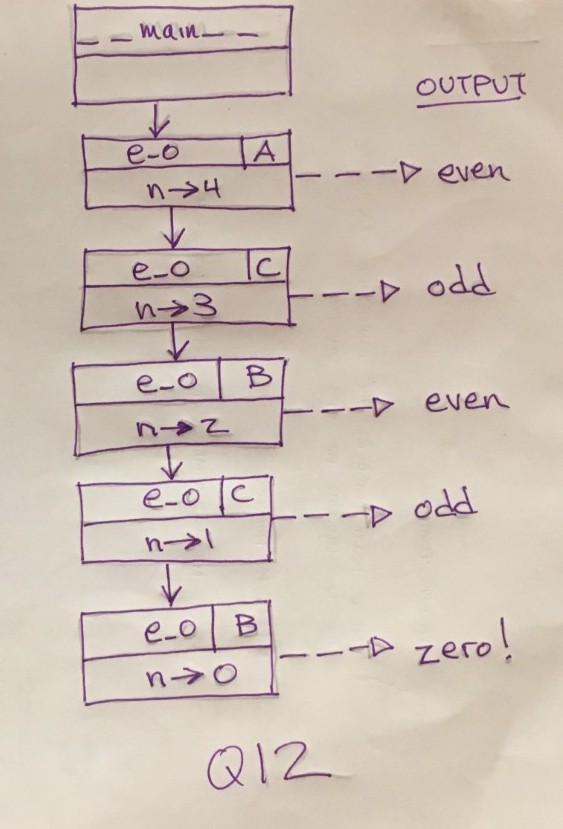 __main__
OUTPUT
e_o A
n→4 even
e_o C
n→3 odd
e_o B
n→2 even
e_o C
n→1 odd
e_o B
n→0 zero!
Q12